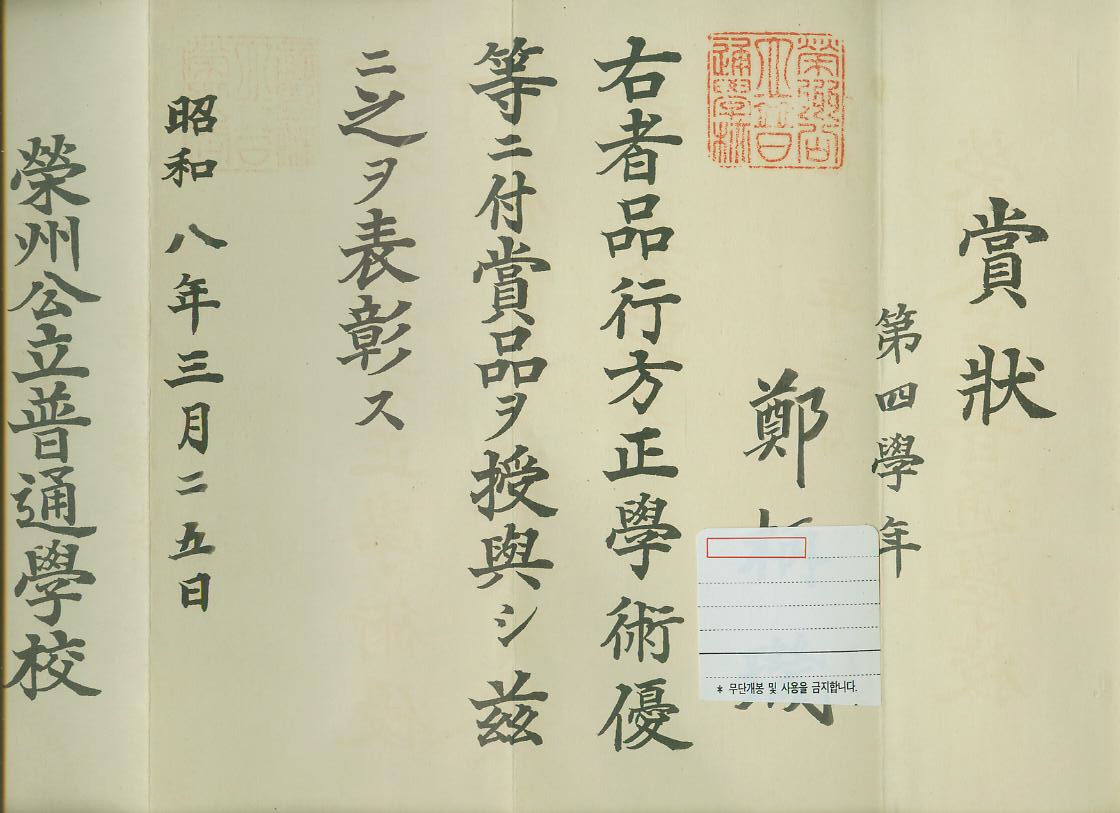 賞狀
第四學年
鄭
右者品行方正學術優
等ニ付賞品ヲ授與シ茲
ニ之ヲ表彰ス
昭和八年三月二五日
榮州公立普通學校
榮州公
立普
通學校
* 무단개봉 및 사용을 금지합니다.